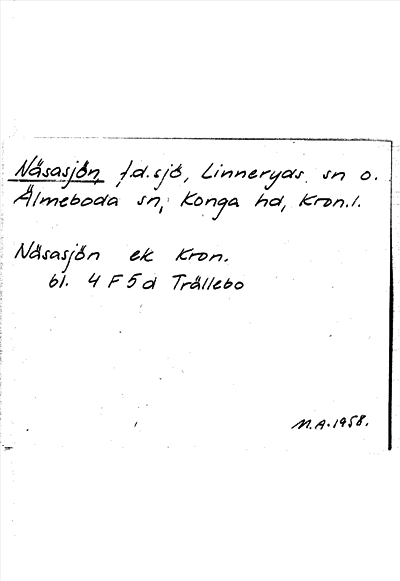 Näsasjön, f.d.sjö, Linneryds sn o.
Älmeboda sn, Konga hd, Kron.l.
Näsasjön ek Kron.
bl. 4 F 5 d Trällebo
M.A. 1958.